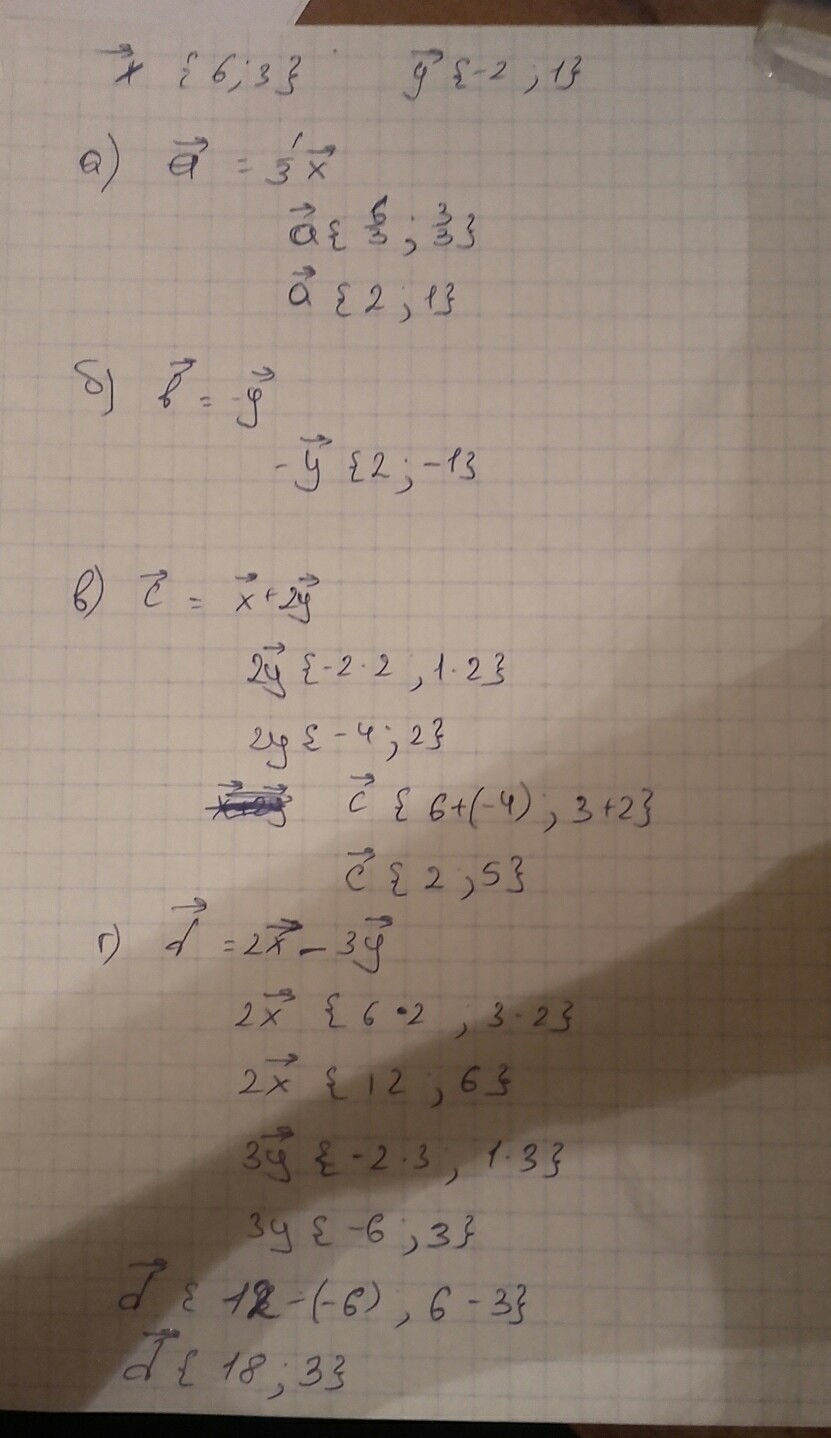 x⃗ {6;3} y⃗ {-2;1}
а) a⃗ = 1/3 x⃗
a⃗ {6/3; 3/3}
a⃗ {2;1}
б) b⃗ = -y⃗
-y⃗ {2;-1}
в) c⃗ = x⃗+2y⃗
2y⃗ {-2·2, 1·2}
2y {-4;2}
c⃗ {6+(-4); 3+2}
c⃗ {2;5}
г) d⃗ = 2x⃗ - 3y⃗
2x⃗ {6·2, 3·2}
2x⃗ {12;6}
3y⃗ {-2·3, 1·3}
3y {-6;3}
d⃗ {12-(-6), 6-3}
d⃗ {18;3}